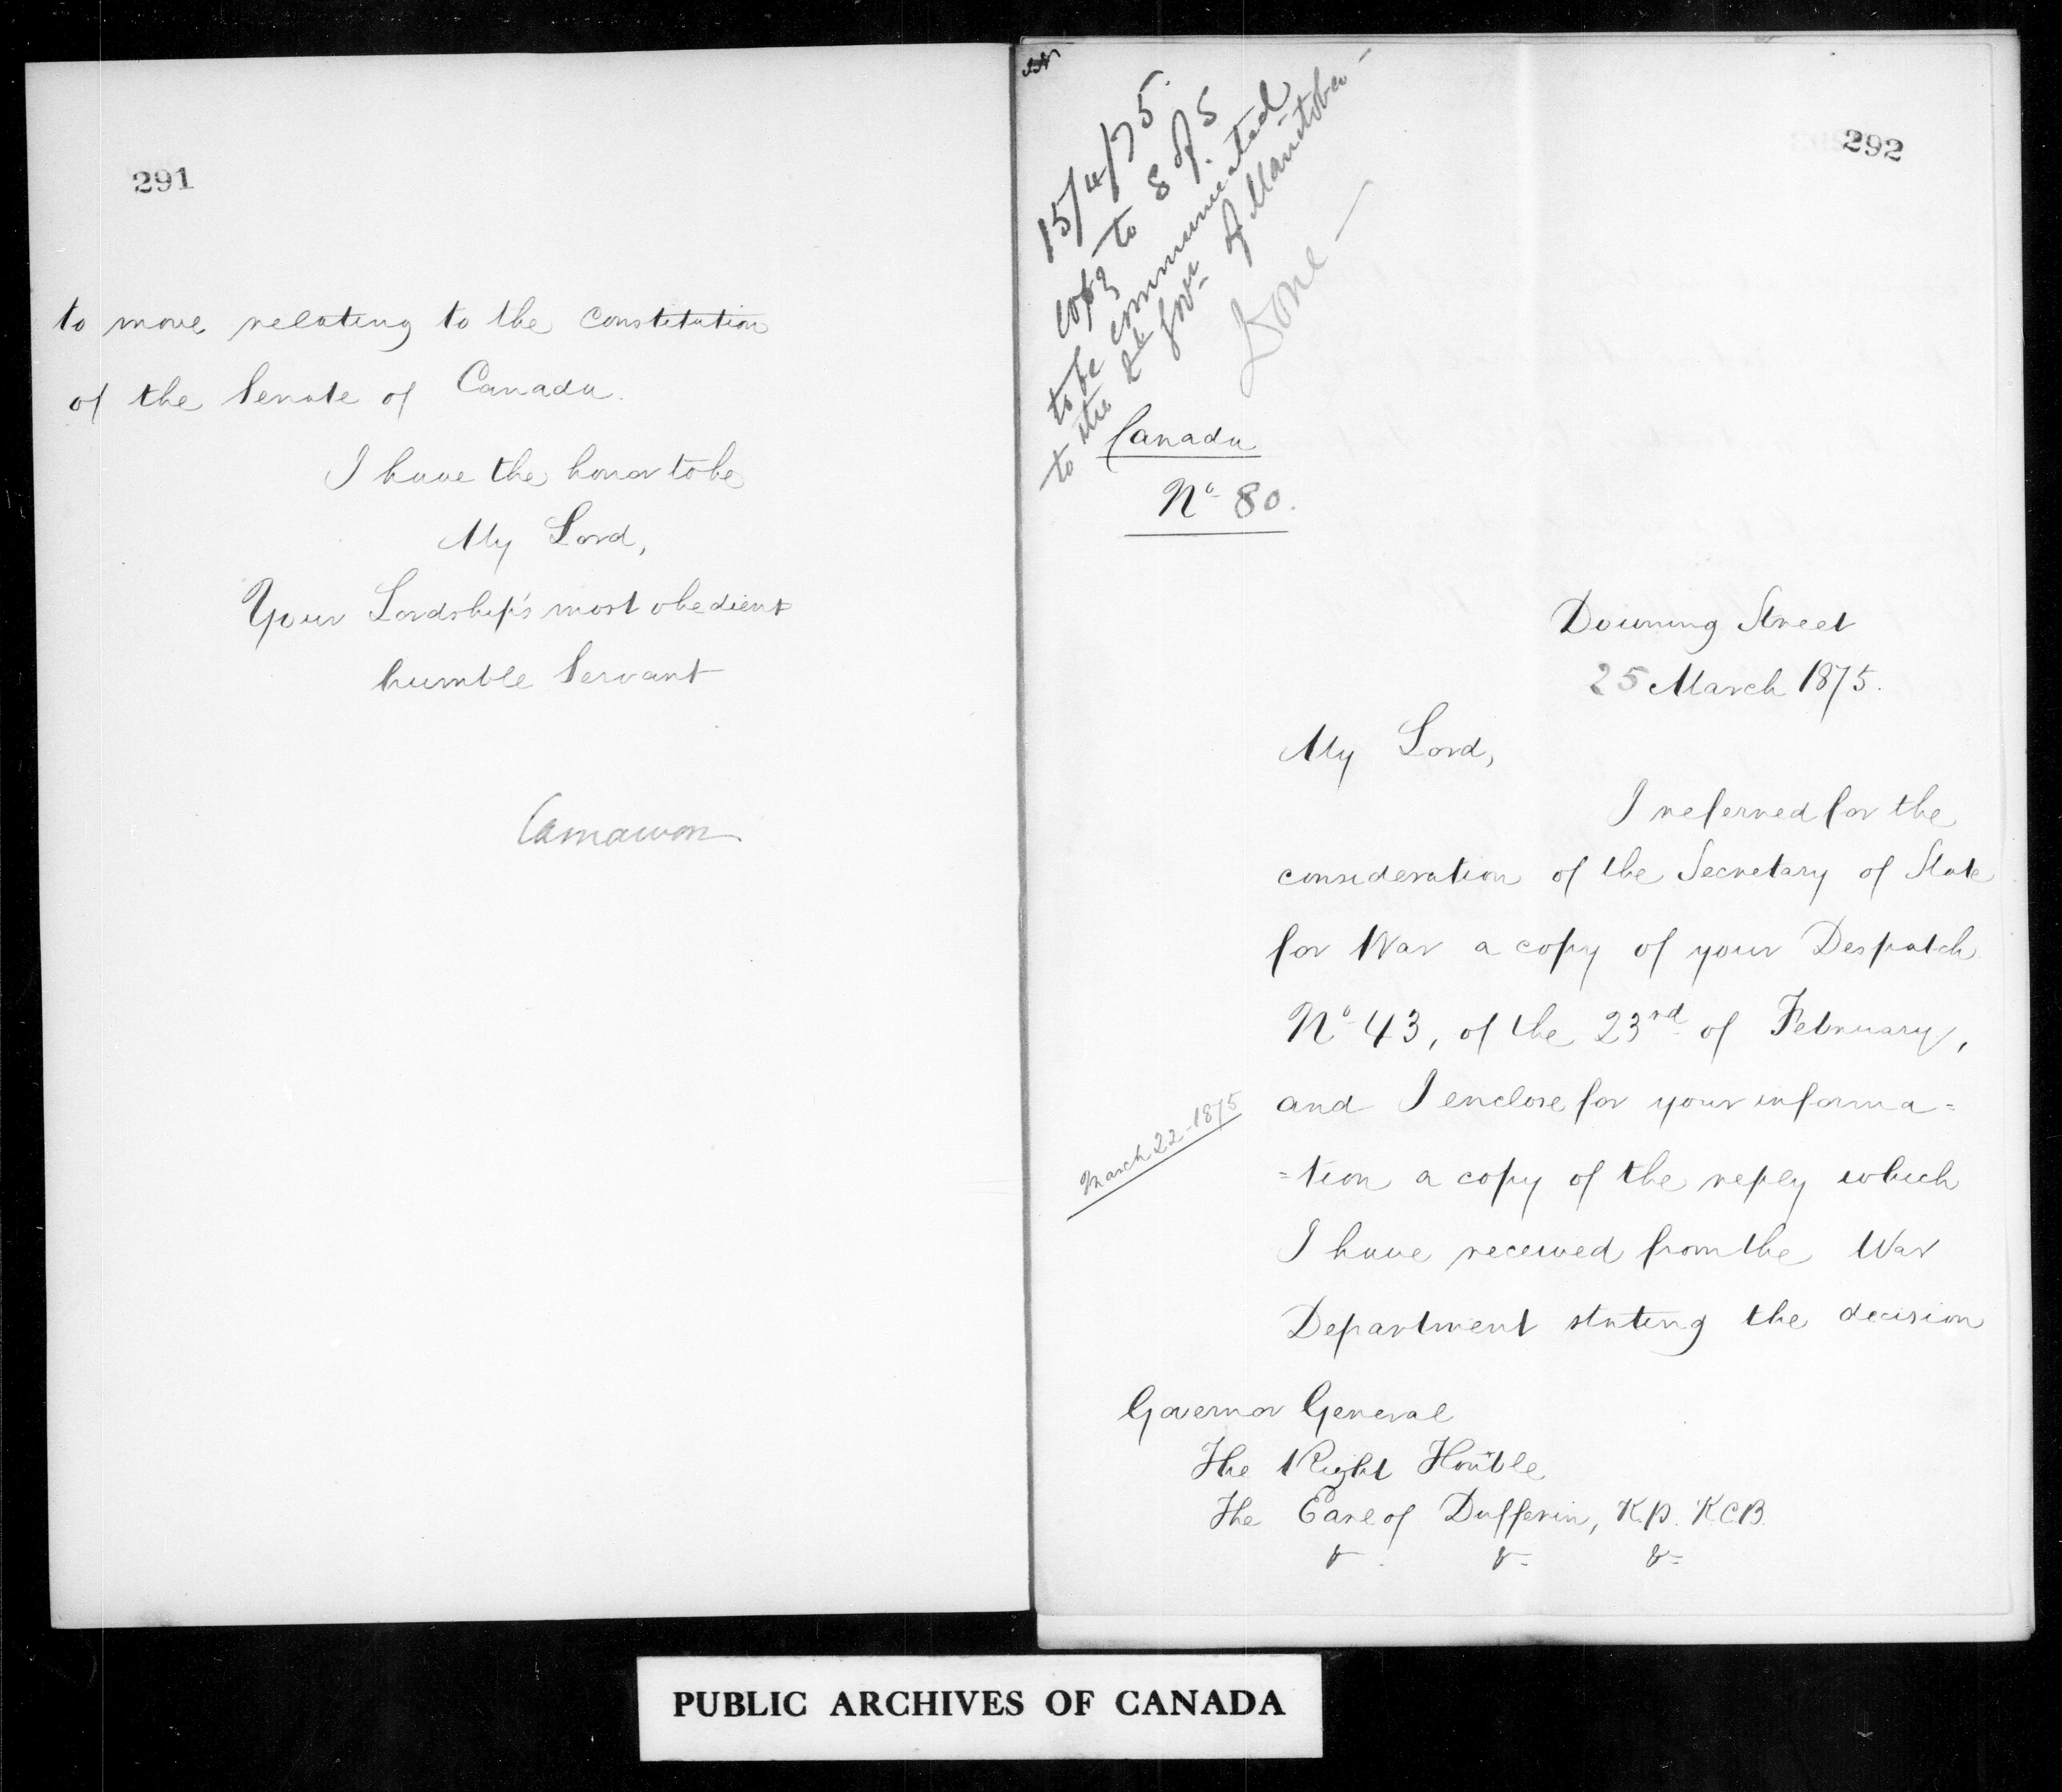 291
to move relating to the constitution
of the Senate of Canada.
I have the honor to be
My Lord,
Your Lordship's most obedient
humble Servant
Carnarvon
292
15/4/75.
Copy to S of S
to be communicated
to the Lt Govr of Manitoba -
Done -
Canada
No 80.
Downing Street
25 March 1875.
My Lord,
I referred for the
consideration of the Secretary of State
for War a copy of your Despatch
No 43, of the 23rd of February,
and I enclose for your informa=
=tion a copy of the reply which
March 22-1875
I have received from the War
Department stating the decision
Governor General
The Right Honble
The Earl of Dufferin, K.P. K.C.B.
& & &
PUBLIC ARCHIVES OF CANADA